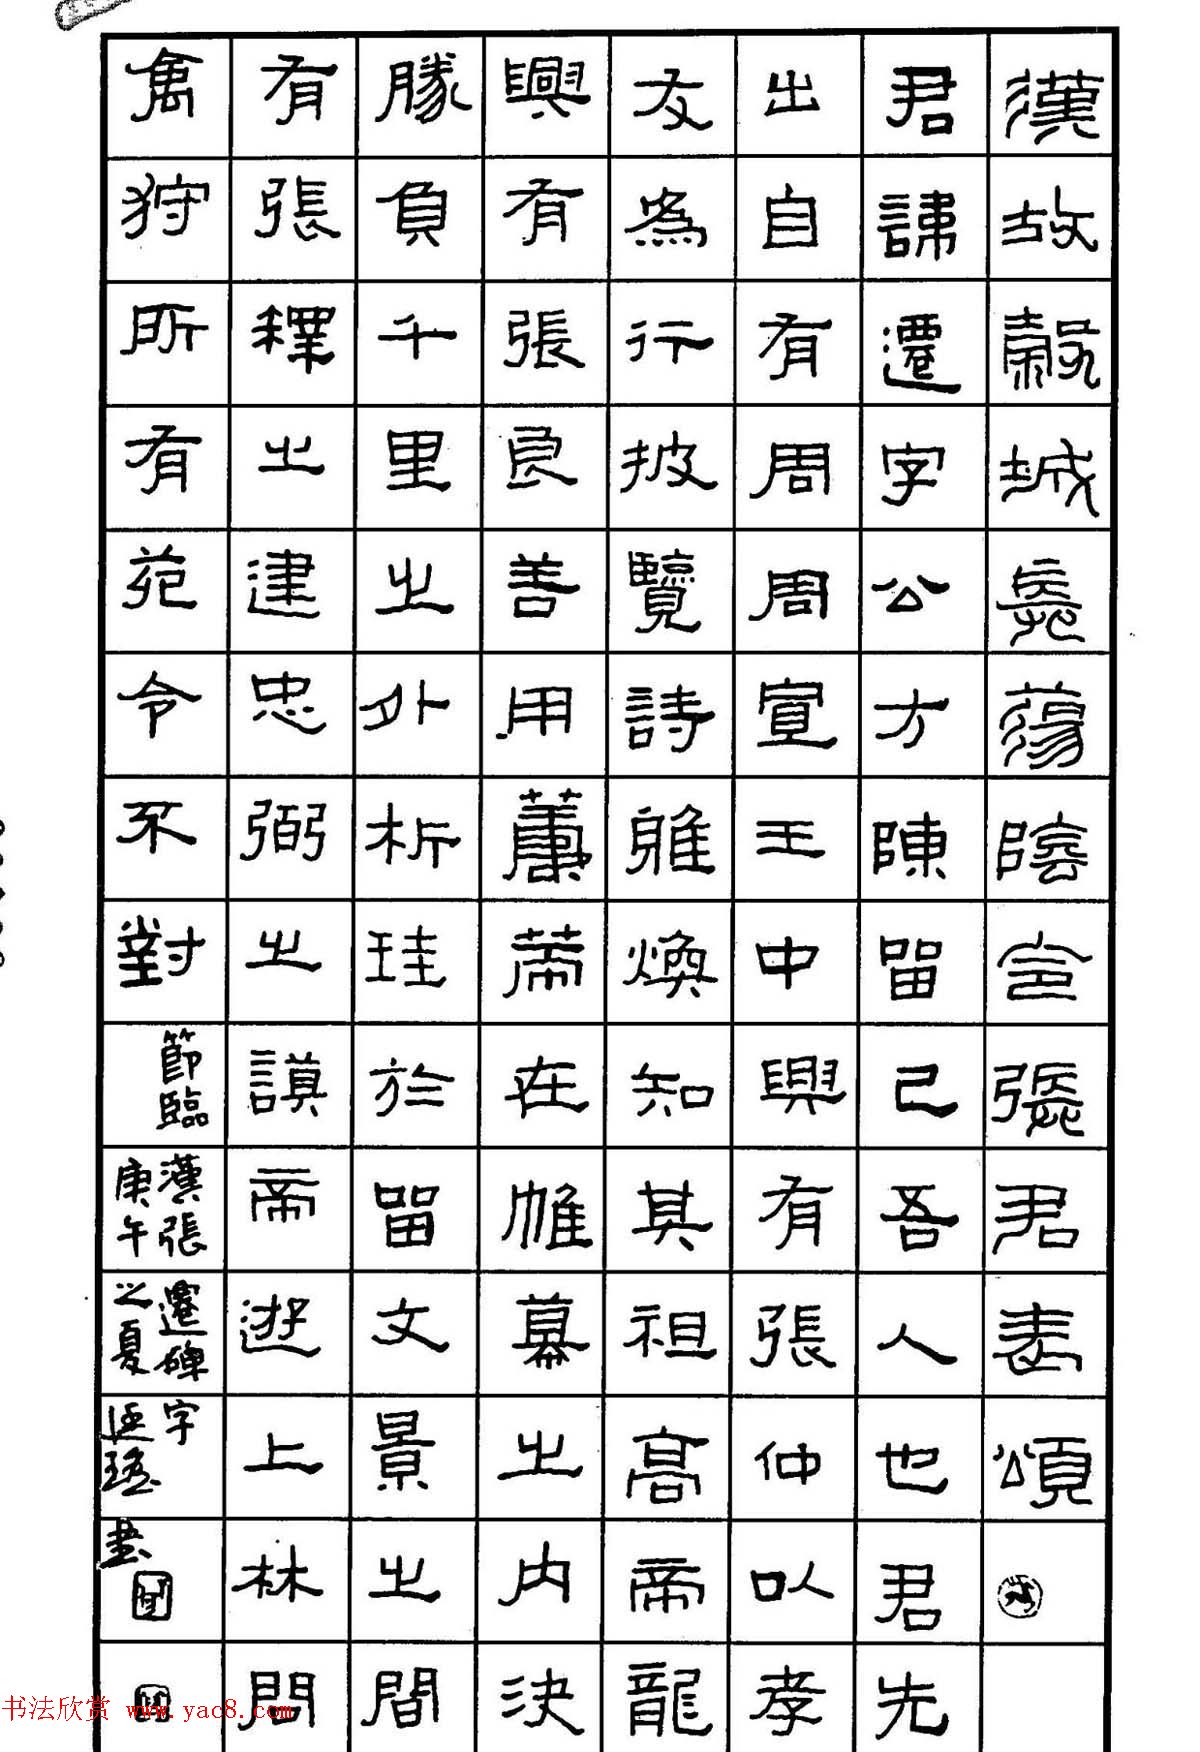 漢故穀城長蕩陰令張君表頌
君諱遷字公方陳留己吾人也君先
出自有周周宣王中興有張仲以孝
友為行披覽詩雅煥知其祖高帝龍
興有張良善用蕭苐在帷幕之內決
勝負千里之外析珪於留文景之間
有張釋之建忠弼之謨帝遊上林問
禽狩所有苑令不對
節臨漢張遷碑字
庚午之夏
書
书法欣赏 www.yac8.com